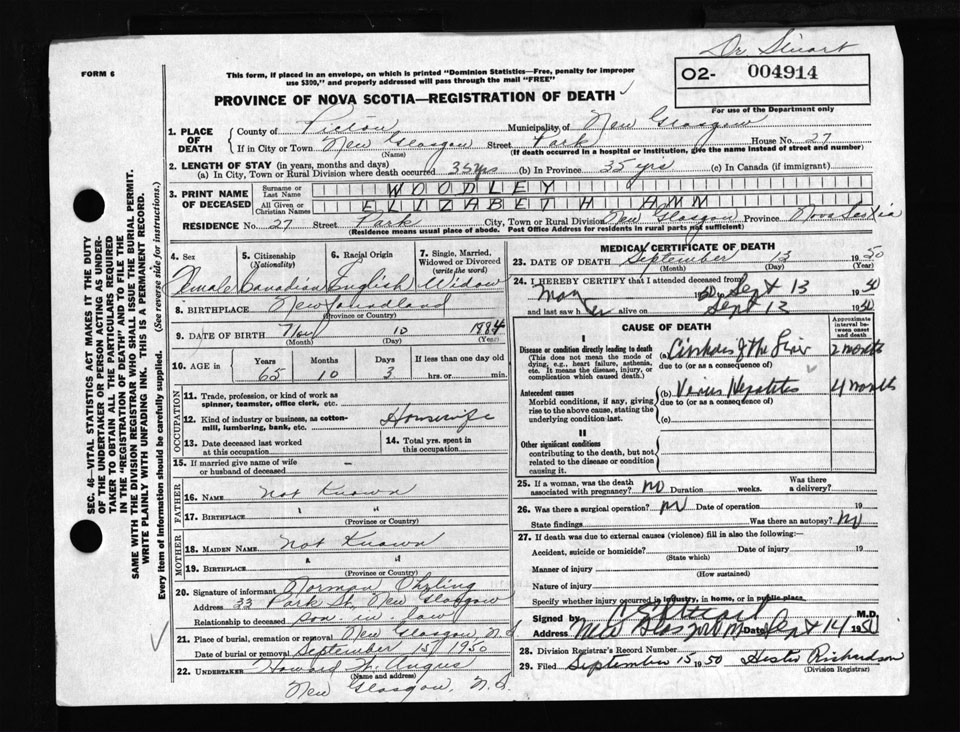 Dr Stuart
FORM 6
This form, if placed in an envelope, on which is printed "Dominion Statistics—Free, penalty for improper
use $300," and properly addressed will pass through the mail "FREE"
O2- 004914
For use of the Department only
PROVINCE OF NOVA SCOTIA—REGISTRATION OF DEATH
1. PLACE OF DEATH
County of Pictou Municipality of New Glasgow
If in City or Town New Glasgow Street Park House No. 27
(Name) (If death occurred in a hospital or institution, give the name instead of street and number)
2. LENGTH OF STAY (in years, months and days)
(a) In City, Town or Rural Division where death occurred 35 yrs (b) In Province 35 yrs (c) In Canada (if immigrant)
3. PRINT NAME OF DECEASED
Surname or Last Name WOODLEY
All Given or Christian Names ELIZABETH ANN
RESIDENCE No. 27 Street Park City, Town or Rural Division New Glasgow Province Nova Scotia
(Residence means usual place of abode. Post Office Address for residents in rural parts not sufficient)
4. Sex Female
5. Citizenship (Nationality) Canadian
6. Racial Origin English
7. Single, Married, Widowed or Divorced (write the word) Widow
8. BIRTHPLACE Newfoundland
(Province or Country)
9. DATE OF BIRTH Nov 10 1884
(Month) (Day) (Year)
10. AGE in Years 65 Months 10 Days 3 If less than one day old
hrs. or min.
OCCUPATION
11. Trade, profession, or kind of work as
spinner, teamster, office clerk, etc.
12. Kind of industry or business, as cotton-
mill, lumbering, bank, etc. Housewife
13. Date deceased last worked
at this occupation
14. Total yrs. spent in
this occupation
15. If married give name of wife
or husband of deceased
FATHER
16. NAME Not Known
17. BIRTHPLACE " "
(Province or Country)
MOTHER
18. MAIDEN NAME Not Known
19. BIRTHPLACE " "
(Province or Country)
20. Signature of informant Norman
Address 33 Park St, New Glasgow
Relationship to deceased son in law
21. Place of burial, cremation or removal New Glasgow, N.S
Date of burial or removal September 15, 1950
22. UNDERTAKER Howard W. Angus
(Name and address)
New Glasgow, N.S.
MEDICAL CERTIFICATE OF DEATH
23. DATE OF DEATH September 13 1950
(Month) (Day) (Year)
24. I HEREBY CERTIFY that I attended deceased from
May 1950 to Sept 13 1950
and last saw her alive on Sept 12 1950
CAUSE OF DEATH
Approximate interval between onset and death
I
Disease or condition directly leading to death
(This does not mean the mode of
dying, e.g., heart failure, asthenia,
etc. It means the disease, injury, or
complication which caused death.)
(a) Cirrhosis of the Liver 2 months
due to (or as a consequence of)
Antecedent causes
Morbid conditions, if any, giving
rise to the above cause, stating the
underlying condition last.
(b) Virus Hepatitis 4 months
due to (or as a consequence of)
(c)
II
Other significant conditions
contributing to the death, but not
related to the disease or condition
causing it.
25. If a woman, was the death
associated with pregnancy? No Duration weeks. Was there
a delivery?
26. Was there a surgical operation? No Date of operation 19
State findings Was there an autopsy? No
27. If death was due to external causes (violence) fill in also the following:—
Accident, suicide or homicide? Date of injury 19
(State which)
Manner of injury
(How sustained)
Nature of injury
Specify whether injury occurred in industry, in home, or in public place.
Signed by Stuart M.D.
Address New Glasgow Date Sept 14 1950
28. Division Registrar's Record Number
29. Filed September 15 1950 Hester Richardson
(Division Registrar)
SEC. 46—VITAL STATISTICS ACT MAKES IT THE DUTY
OF THE UNDERTAKER OR PERSON ACTING AS UNDER-
TAKER TO OBTAIN ALL THE PARTICULARS REQUIRED
IN THE "REGISTRATION OF DEATH" AND TO FILE THE
SAME WITH THE DIVISION REGISTRAR WHO SHALL ISSUE THE BURIAL PERMIT.
WRITE PLAINLY WITH UNFADING INK. THIS IS A PERMANENT RECORD.
Every item of information should be carefully supplied. (See reverse side for instructions.)